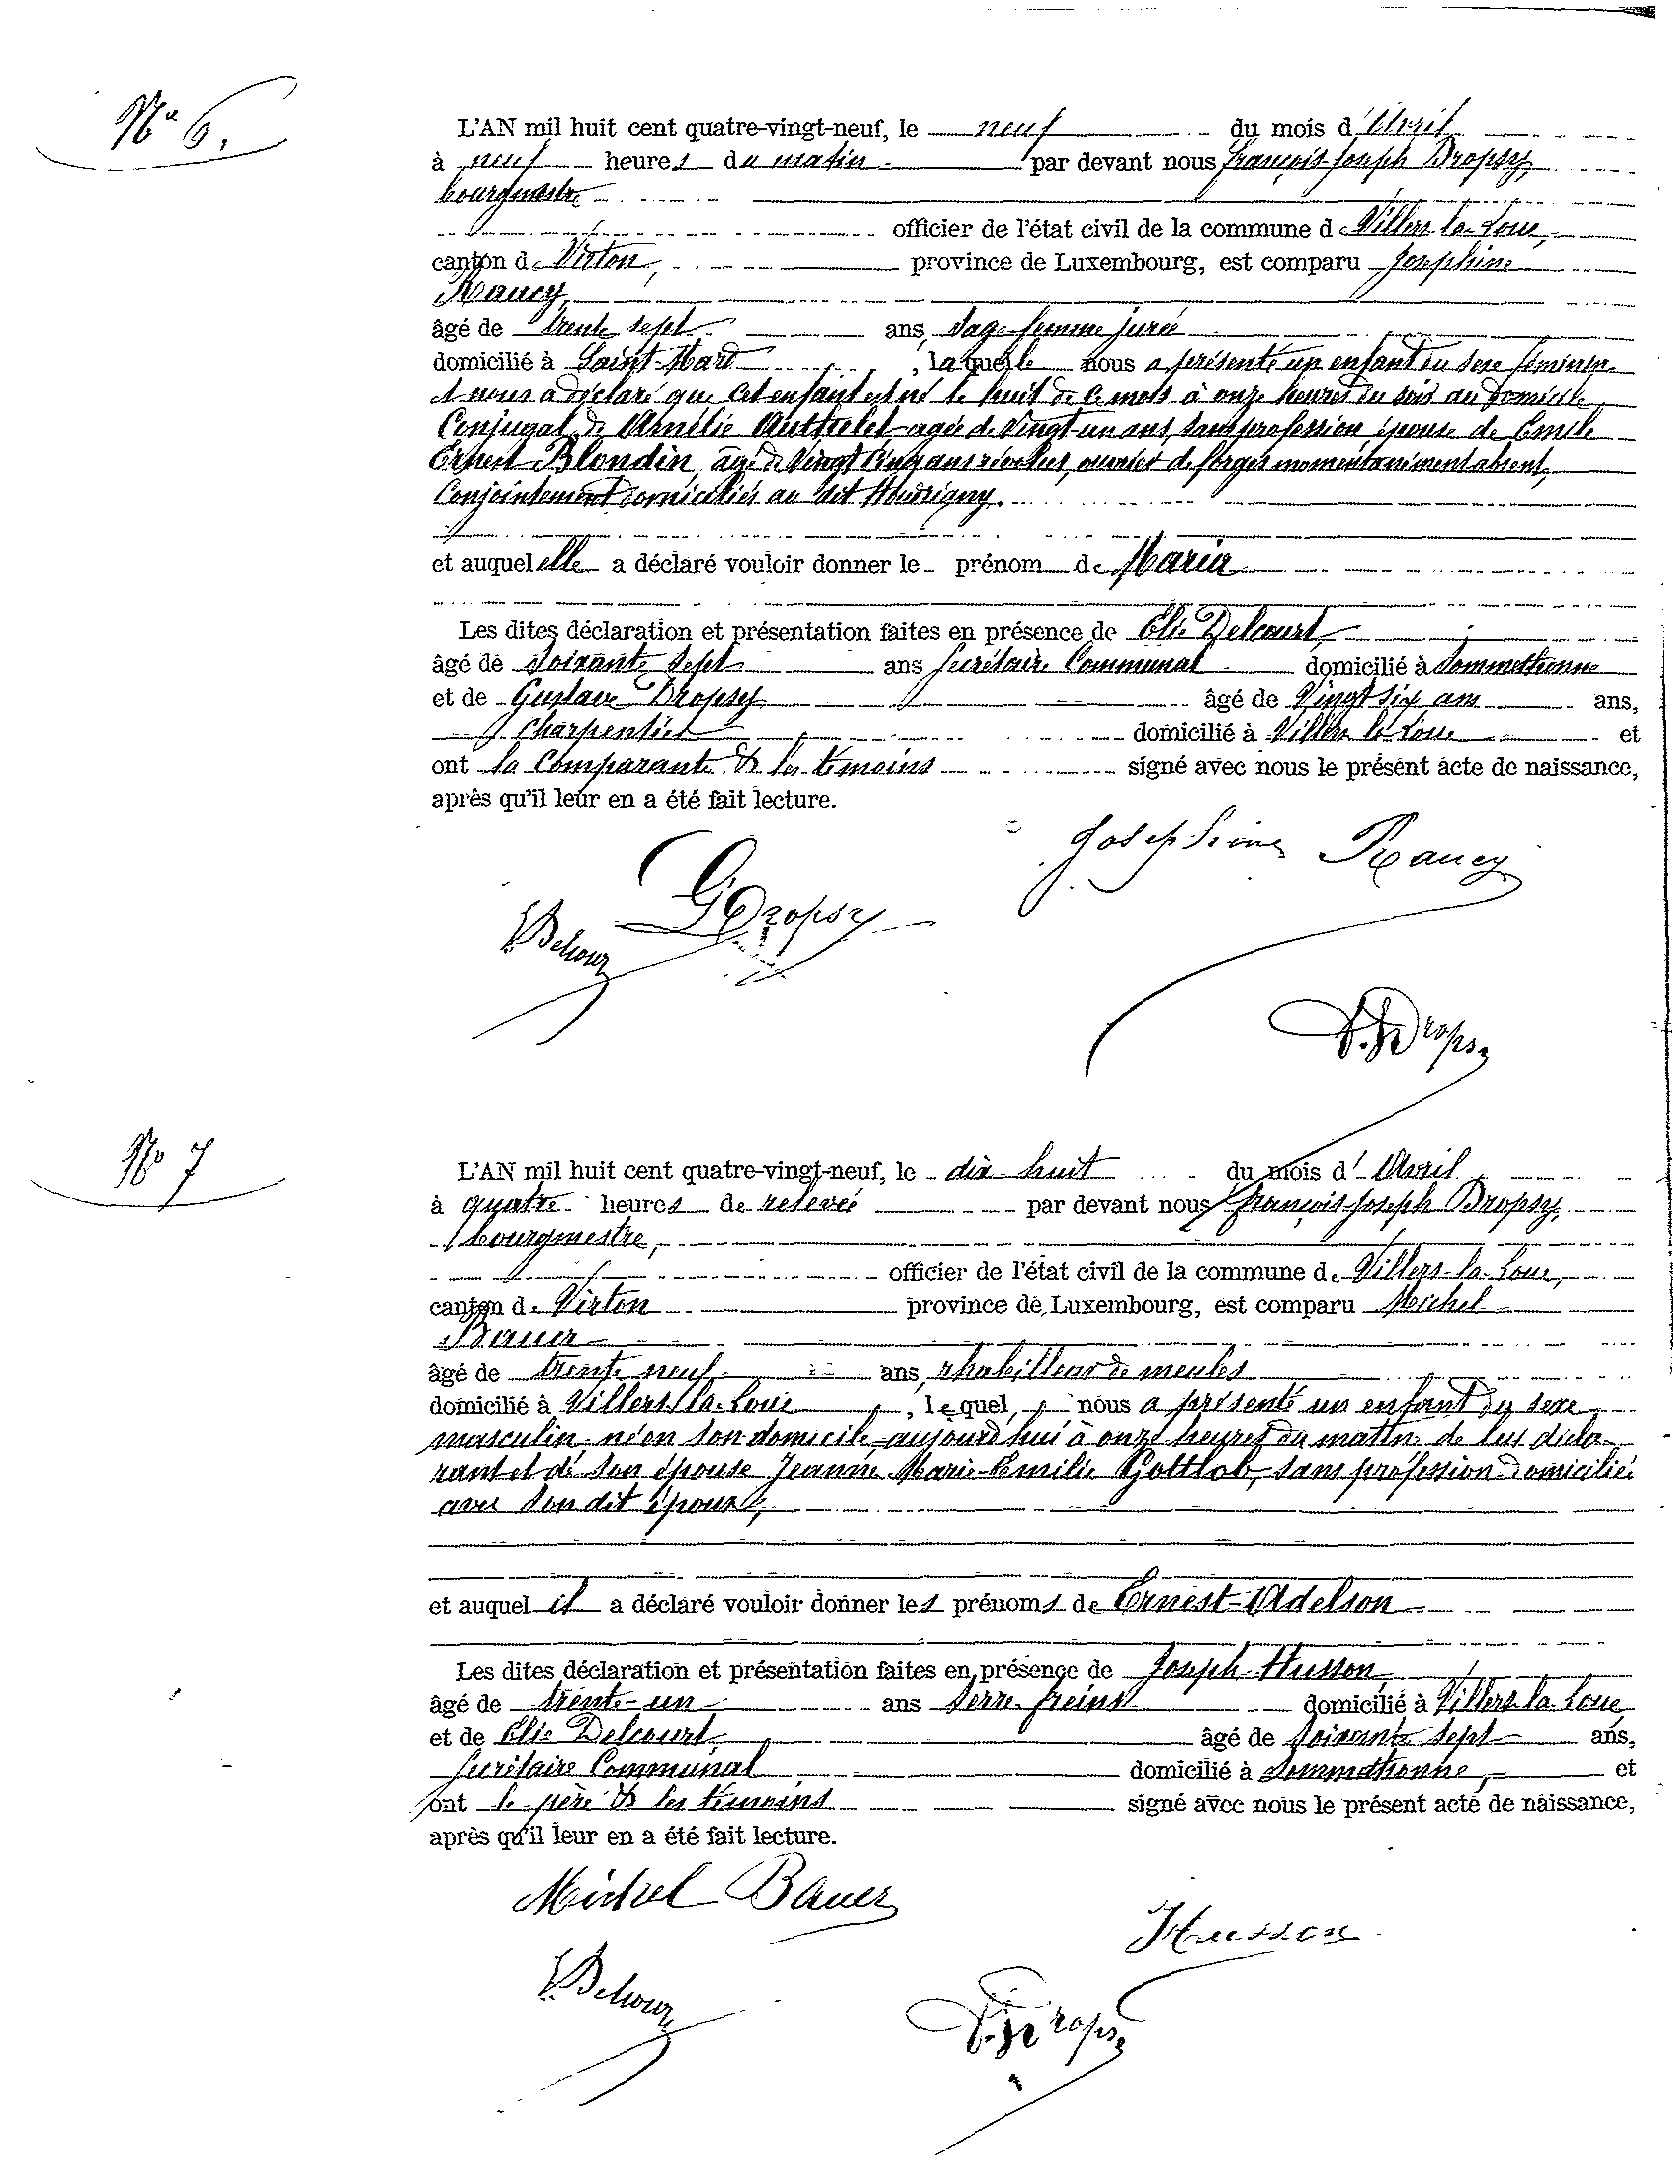 N° 6.
L'AN mil huit cent quatre-vingt-neuf, le neuf du mois d'Avril
à neuf heures du matin par devant nous François Joseph Dropsy,
bourgmestre
officier de l'état civil de la commune de Villers-la-Loue,
canton de Virton, province de Luxembourg, est comparu Joséphine
Raucy,
âgé de trente sept ans, sage-femme jurée
domicilié à Saint-Mard, laquelle nous a présenté un enfant du sexe féminin
et nous a déclaré que cet enfant est né le huit de ce mois à onze heures du soir au domicile
Conjugal de Amélie Authelet agée de vingt-un ans, sans profession, épouse de Emile
Ernest Blondin, âgé de vingt cinq ans révolus, ouvrier de forges momentanément absent,
Conjointement domiciliés au dit Houdrigny.
et auquel elle a déclaré vouloir donner le prénom de Maria
Les dites déclaration et présentation faites en présence de Elie Delcourt,
âgé de soixante sept ans Secrétaire Communal domicilié à Sommethonne
et de Gustave Dropsy âgé de vingt six ans ans,
charpentier domicilié à Villers la Loue et
ont la Comparante & les témoins signé avec nous le présent acte de naissance,
après qu'il leur en a été fait lecture.
Josephine Raucy
G Dropsy
E. Delcour
F. J. Dropsy
N° 7
L'AN mil huit cent quatre-vingt-neuf, le dix huit du mois d'Avril
à quatre heures de relevée par devant nous François-Joseph Dropsy,
bourgmestre,
officier de l'état civil de la commune de Villers-la-Loue,
canton de Virton province de Luxembourg, est comparu Michel
Bauer
âgé de trente neuf ans, rhabilleur de meules
domicilié à Villers-la-Loue, lequel, nous a présenté un enfant du sexe
masculin né en son domicile aujourd'hui à onze heures du matin de lui décla-
rant et de son épouse Jeanne Marie-Emilie Gottlob, sans profession domiciliée
avec son dit époux,
et auquel il a déclaré vouloir donner les prénoms de Ernest-Adelson
Les dites déclaration et présentation faites en présence de Joseph Husson,
âgé de trente-un ans serre-freins domicilié à Villers-la-Loue
et de Elie Delcourt âgé de soixante sept ans,
Secrétaire Communal domicilié à Sommethonne, et
ont le père & les témoins signé avec nous le présent acte de naissance,
après qu'il leur en a été fait lecture.
Michel Bauer
Husson
E. Delcour
F. J. Dropsy